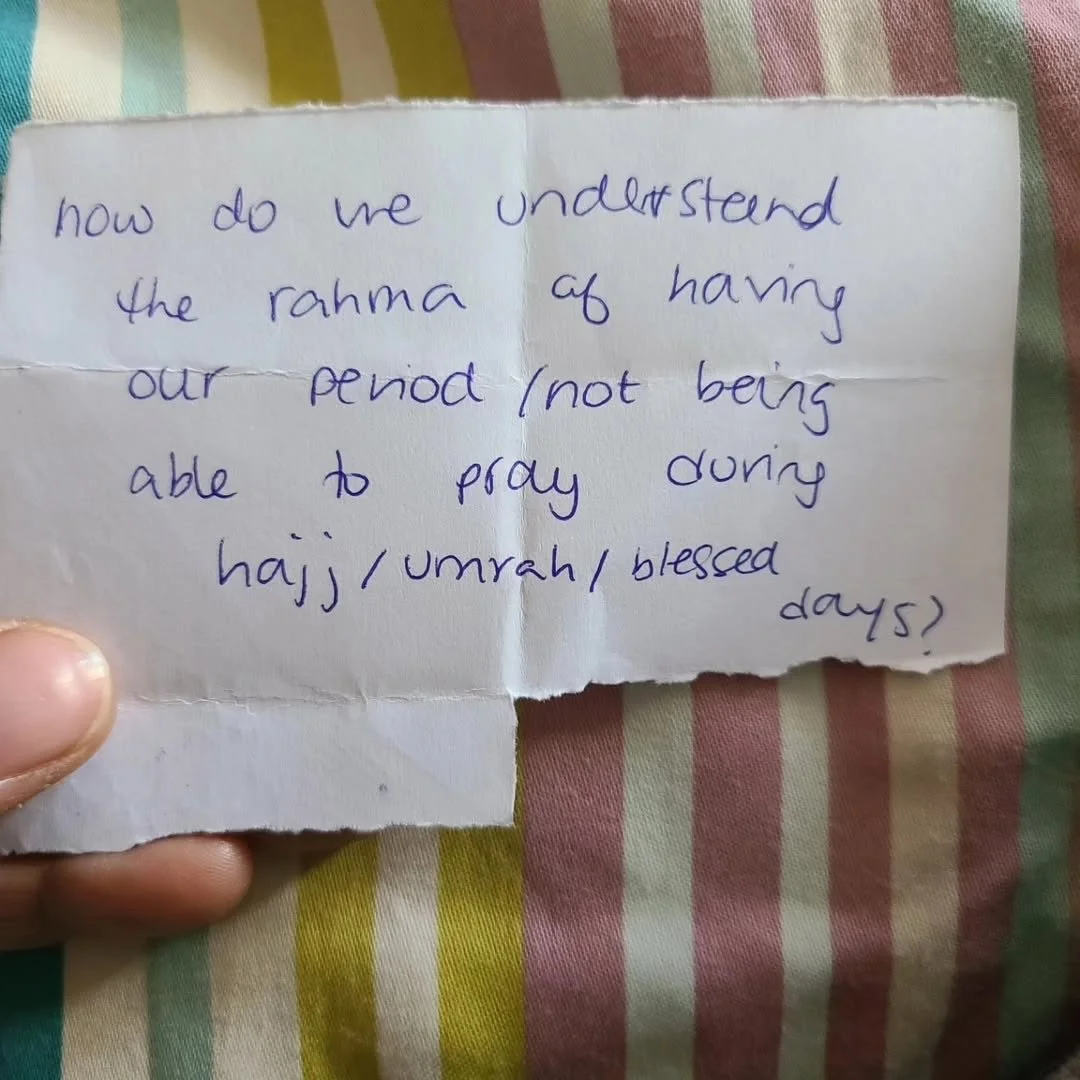 how do we understand
the rahma of having
our period / not being
able to pray during
hajj / umrah / blessed
days?